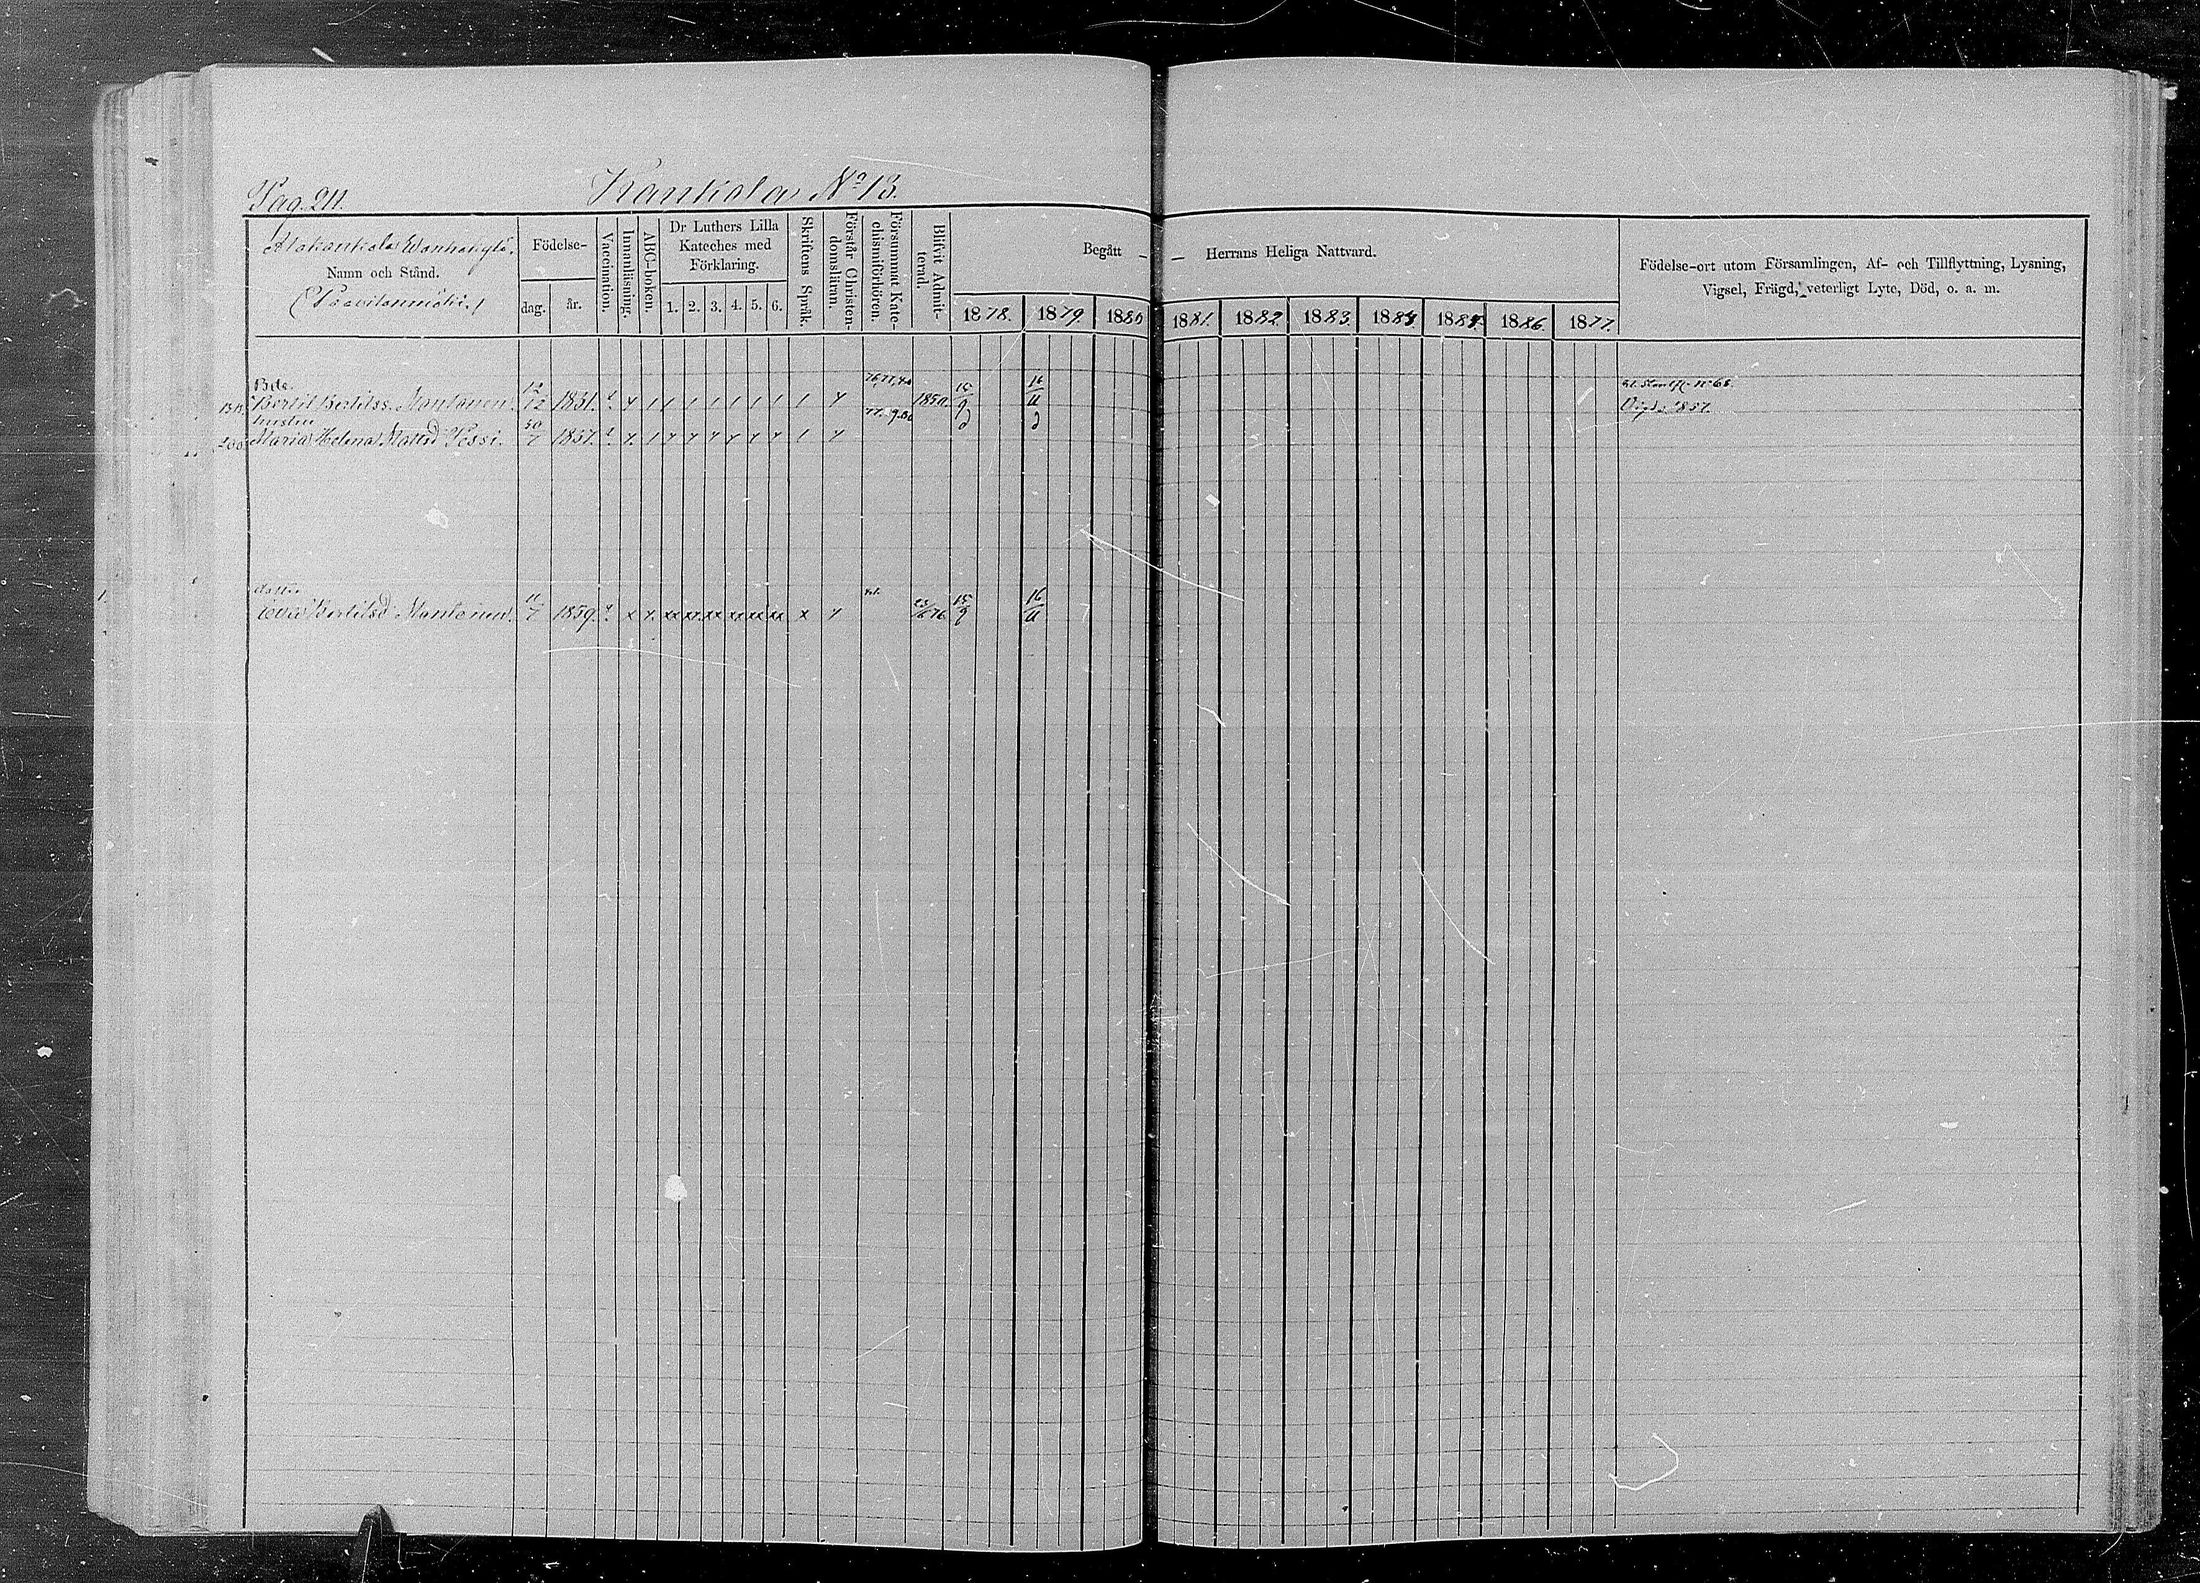 Pag. 211. Kankiala No 13.
Alakankiala Wanhakylä.
Namn och Stånd.
(Paavilanmäki.)
Födelse-
dag. år.
Vaccination.
Innanläsning.
ABC-boken.
Dr Luthers Lilla
Kateches med
Förklaring.
1. 2. 3. 4. 5. 6.
Skriftens Språk.
Förstår Christen-
domsläran.
Försummat Kate-
chismiförhören.
Blifvit Admit-
terad.
Begått — — Herrans Heliga Nattvard.
1878. 1879. 1880 1881. 1882. 1883. 1884. 1885. 1886. 1877.
Födelse-ort utom Församlingen, Af- och Tillflyttning, Lysning,
Vigsel, Frägd, veterligt Lyte, Död, o. a. m.
Bertil Bertilss. Mantanen. 12/12 1831. 1850. 15/9 16/11
Vigd 1857.
hustru
Maria Helena Mattsd 30/7 1837.
dotter
Eva Bertilsd Mantanen. 11/7 1859. 15/9 16/11